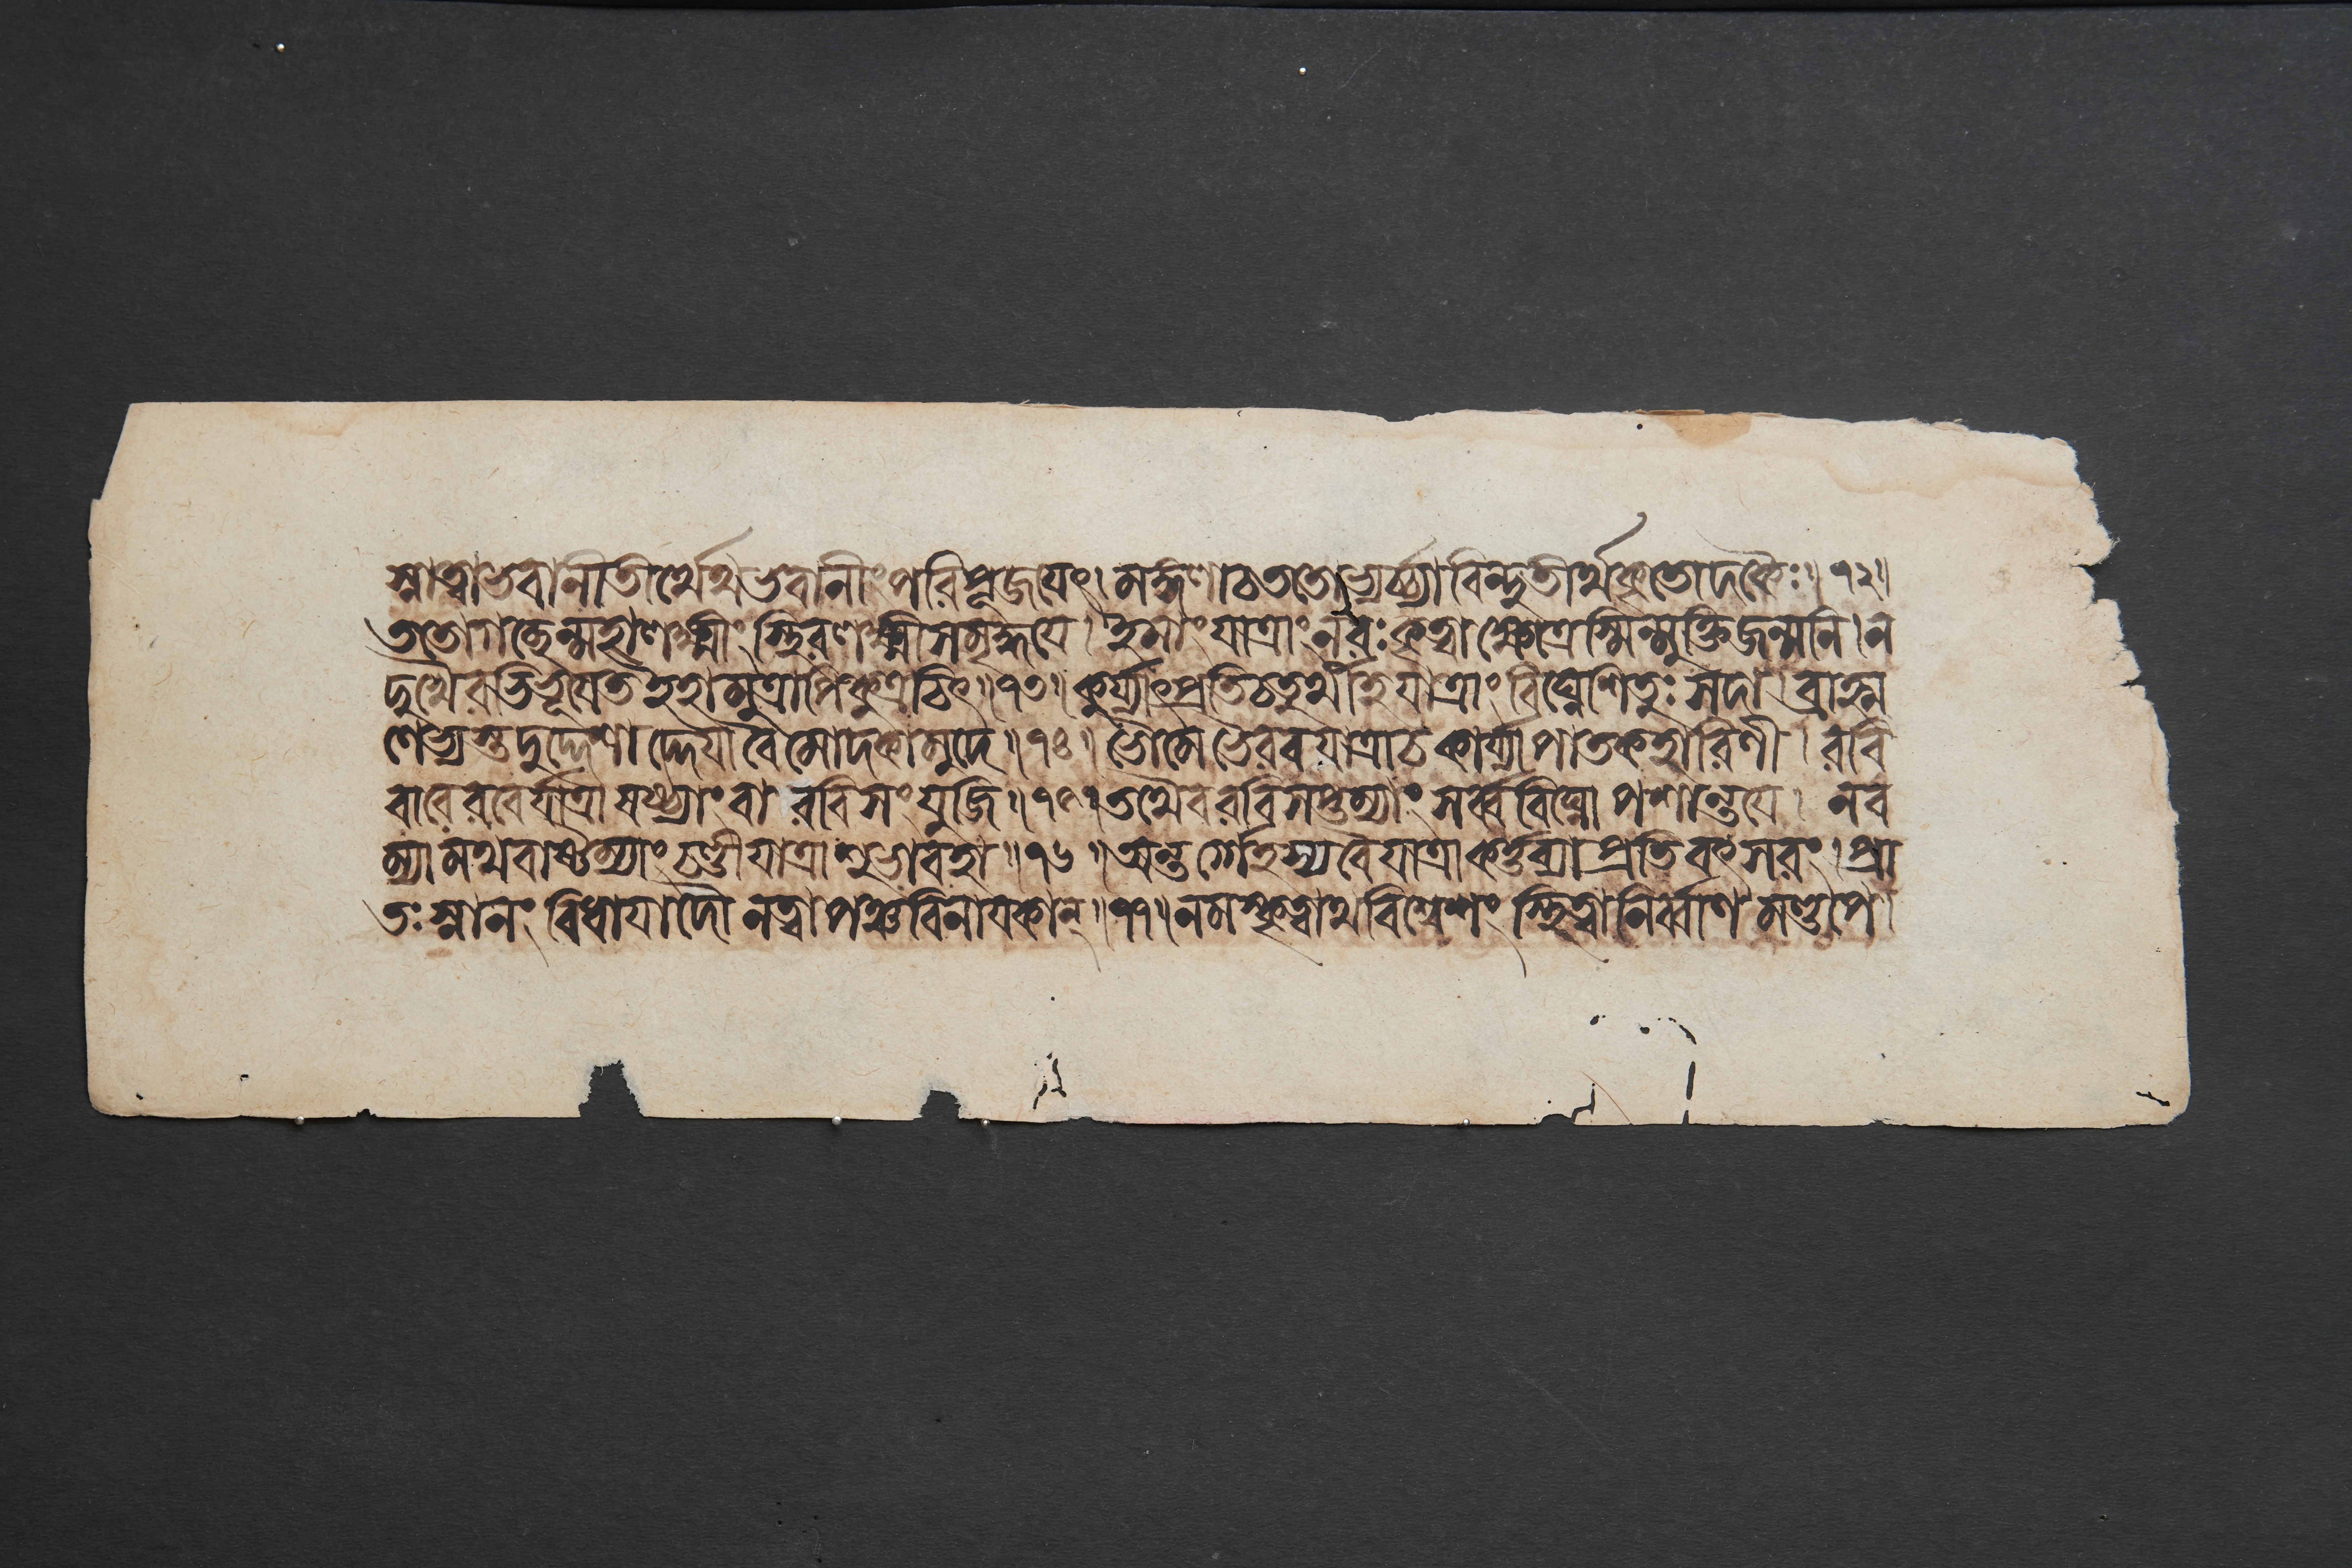 স্নাত্বা ভবানিতীর্থেথ ভবানীং পরিপূজয়েৎ। মঙ্গলা চ ততোভ্যর্চ্চ্যা বিন্দুতীর্থকৃতোদকৈঃ॥১২॥
ততো গচ্ছেন্মহালক্ষ্মীং স্থিরলক্ষ্মীসমৃদ্ধয়ে। ইমাং যাত্রাং নরঃ কৃত্বা ক্ষেত্রেস্মিন্মুক্তিজন্মনি। ন
দুখৈরভিভূয়েত ইহামুত্রাপি কুত্রচিৎ॥১৩॥ কুর্য্যাৎপ্রতিচতুর্থীহ যাত্রাং বিঘ্নেশিতুঃ সদা। ব্রাহ্ম
ণেভ্যস্তদুদ্দেশাদ্দেয়া বৈ মোদকা মুদে॥১৪॥ ভৌমে ভৈরবযাত্রা চ কার্য্যা পাতকহারিণী। রবি
বারে রবের্যাত্রা ষষ্ঠ্যাং বা রবিসংযুজি॥১৫॥ তথৈব রবিসপ্তম্যাং সর্ব্ববিঘ্নোপশান্তয়ে। নব
ম্যামথবাষ্টম্যাং চণ্ডীযাত্রা শুভাবহা॥১৬॥ অন্তর্গেহস্য বৈ যাত্রা কর্ত্তব্যা প্রতিবৎসরং। প্রা
তঃ স্নানং বিধায়াদৌ নত্বা পঞ্চবিনায়কান্॥১৭॥ নমস্কৃত্বাথ বিশ্বেশং স্থিত্বা নির্ব্বাণমণ্ডপে।